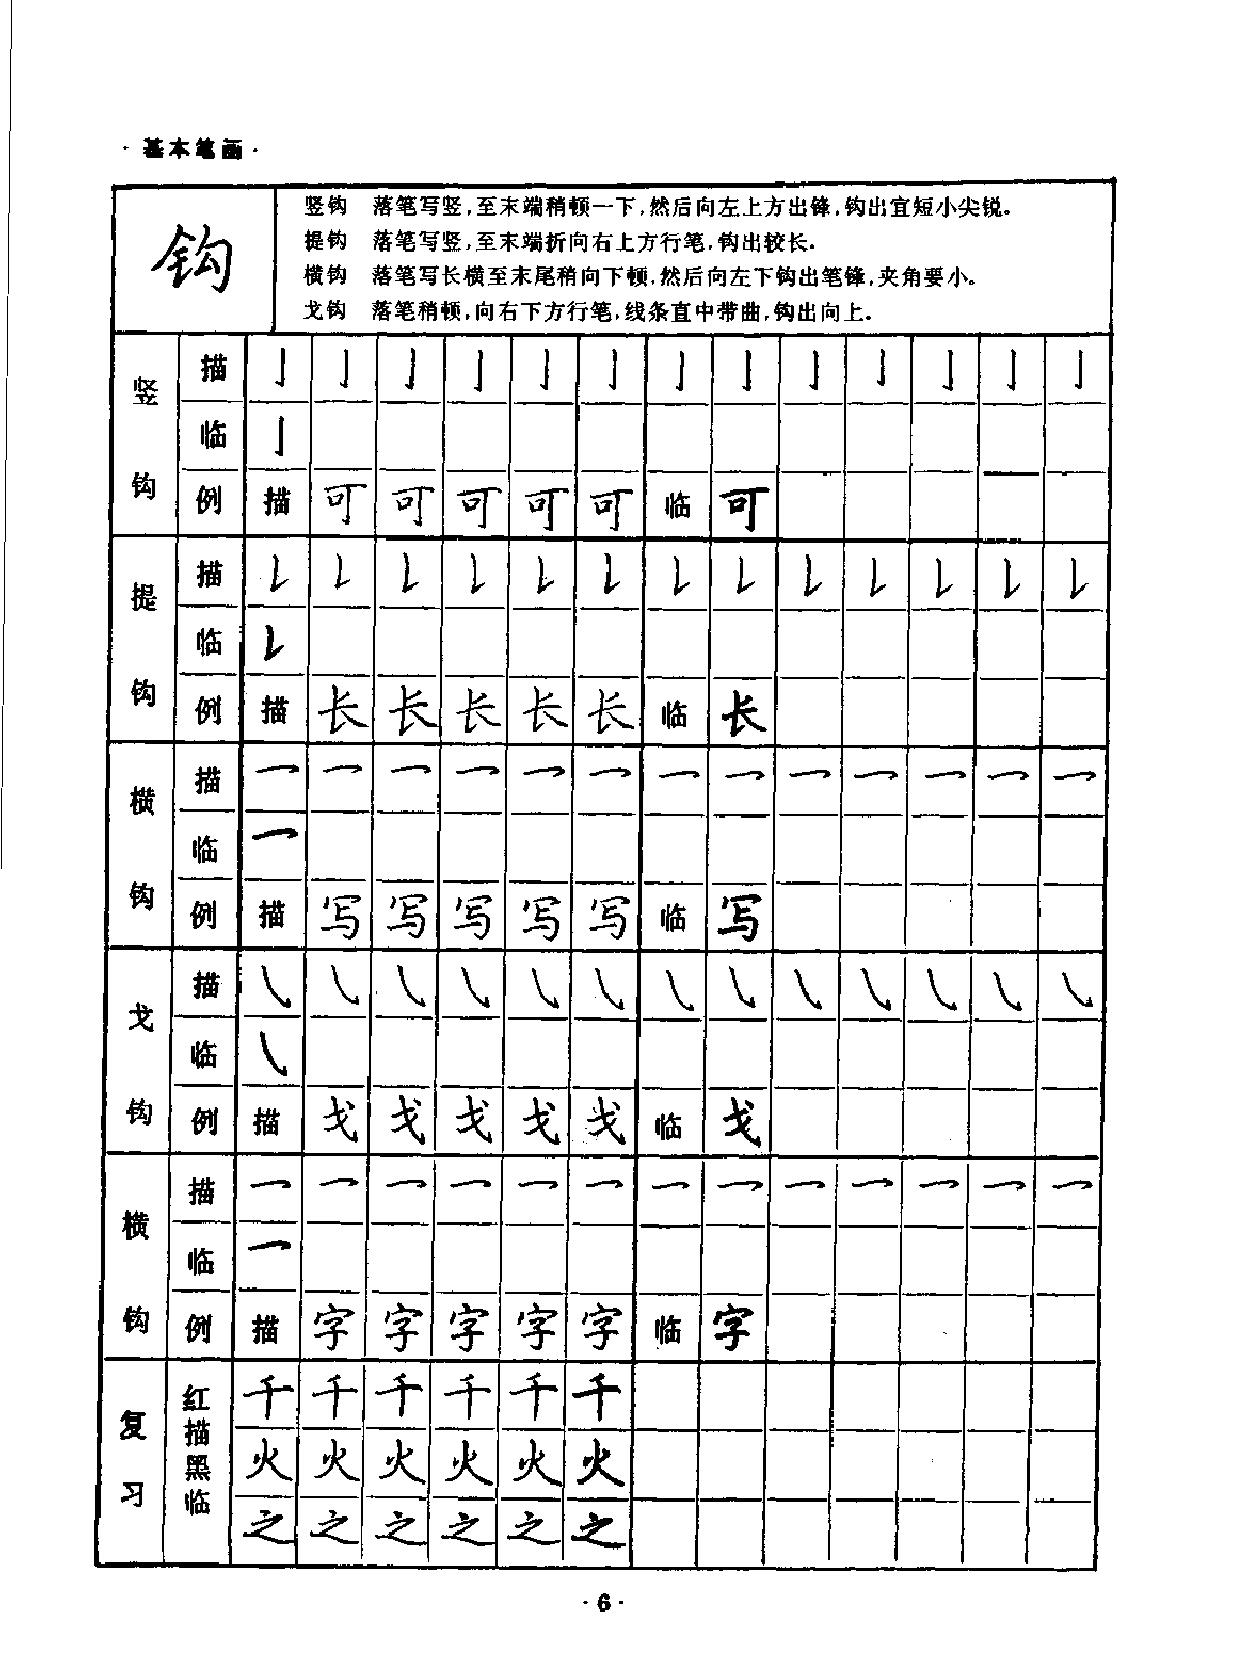 ·基本笔画·
钩
竖钩 落笔写竖,至末端稍顿一下,然后向左上方出锋,钩出宜短小尖锐。
提钩 落笔写竖,至末端折向右上方行笔,钩出较长。
横钩 落笔写长横至末尾稍向下顿,然后向左下钩出笔锋,夹角要小。
戈钩 落笔稍顿,向右下方行笔,线条直中带曲,钩出向上。
竖钩
描 亅 亅 亅 亅 亅 亅 亅 亅 亅 亅 亅 亅 亅
临 亅
例 描 可 可 可 可 可 临 可
提钩
描
临
例 描 长 长 长 长 长 临 长
横钩
描
临
例 描 写 写 写 写 写 临 写
戈钩
描
临
例 描 戈 戈 戈 戈 戈 临 戈
横钩
描
临
例 描 字 字 字 字 字 临 字
复习
红描黑临
千 千 千 千 千 千
火 火 火 火 火 火
之 之 之 之 之 之
·6·